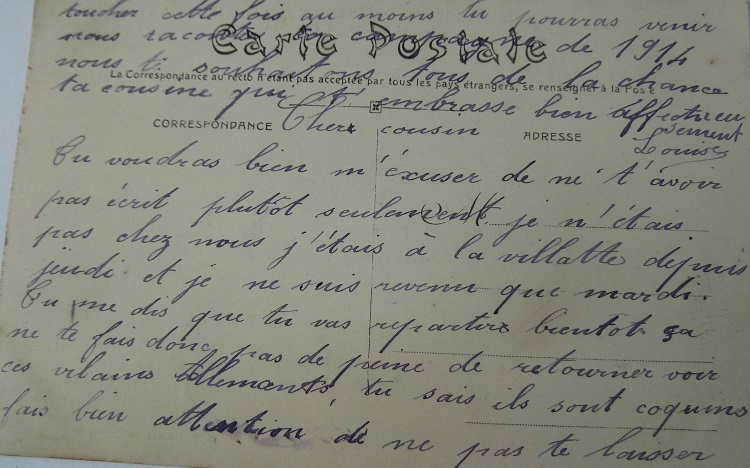 toucher cette fois au moins tu pourras venir
nous raconter ta campagne de 1914
nous te souhaitons tous de la chance
ta cousine qui t'embrasse bien affectueu
sement
Louise
Carte Postale
La Correspondance au recto n'étant pas acceptée par tous les pays étrangers, se renseigner à la Poste
CORRESPONDANCE
ADRESSE
Cher cousin
Tu voudras bien m'éxuser de ne t'avoir
pas écrit plutôt seulement je n'étais
pas chez nous j'étais à la villatte depuis
jeudi et je ne suis revenu que mardi.
Tu me dis que tu vas repartir bientot ça
ne te fais donc pas de peine de retourner voir
ces vilains Allemants, tu sais ils sont coquins
fais bien attention de ne pas te laisser